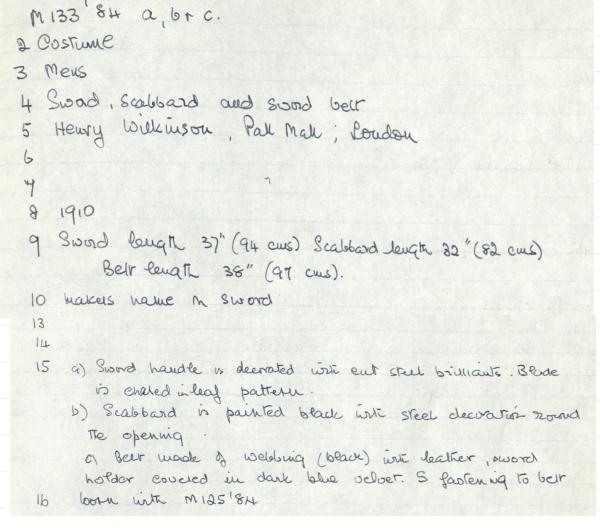 M133'84 a, b & c.
2 Costume
3 Mens
4 Sword, scabbard and sword belt
5 Henry Wilkinson, Pall Mall; London
6
7
8 1910
9 Sword length 37" (94 cms) Scabbard length 32" (82 cms)
Belt length 38" (97 cms).
10 makers name on sword
13
14
15 a) Sword handle is decorated with cut steel brilliants. Blade
is chased in leaf pattern.
b) Scabbard is painted black with steel decoration round
the opening.
c) Belt made of webbing (black) with leather, sword
holder covered in dark blue velvet. S fastening to belt
16 worn with M125'84